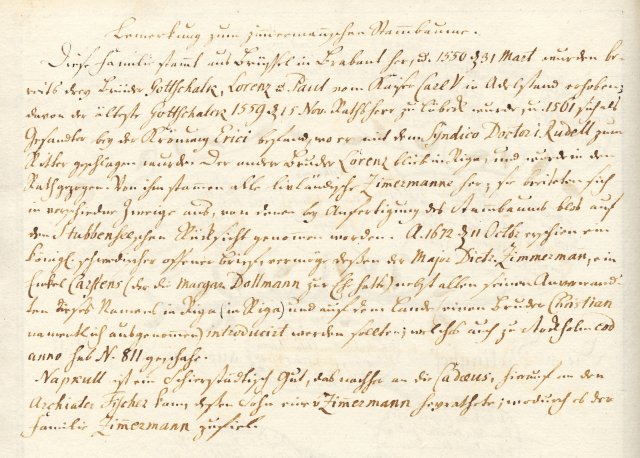 Bemerkung zum zimermannschen Stammbaume.
Diese Familie stammt aus Brüssel in Brabant her, u. 1550 d 31 Mart wurden be-
reits drey Brüder Gottschalk, Lorenz u. Paul vom Kayser Carl V in Adelstand erhoben;
davon der älteste Gottschalck 1559 d 15 Nov. Rathsherr zu Lübeck wurde u. 1561 sich als
Gesandter bey der Krönung Erici befand, wo er mit dem Syndico Doctori Rudell zum
Ritter geschlagen wurden. Der andere Bruder Lorenz blieb in Riga, und wurde in den
Rath gezogen. Von ihm stammen alle livländsche Zimermanne her; sie breiteten sich
in verschiedene Zweige aus, von denen bey Anfertigung des Stammbaums blos auf
den Stubbenseeschen Rücksicht genomen worden. A. 1672 d 11 Octbr erschien ein
königl. schwedischer offener Brief vermöge dessen der Major Dietr. Zimmerman, ein
Enkel Carstens (der die Margar. Dollmann zur Eh. hatte) nebst allen seinen Anverwand-
ten dieses Namens in Riga (in Riga) und auf dem Lande (einen Bruder Christian
namentlich ausgenommen) introducirt werden sollten; welches auch zu Stockholm eod
anno sub N. 811 geschahe.
Napkull ist ein Schierstädtisch Gut, das nachher an die Cadeus, hierauf an den
Archiater Fischer kam, dessen Sohn eine Zimermann heyrathete; wodurch es der
Familie Zimermann zufiel.